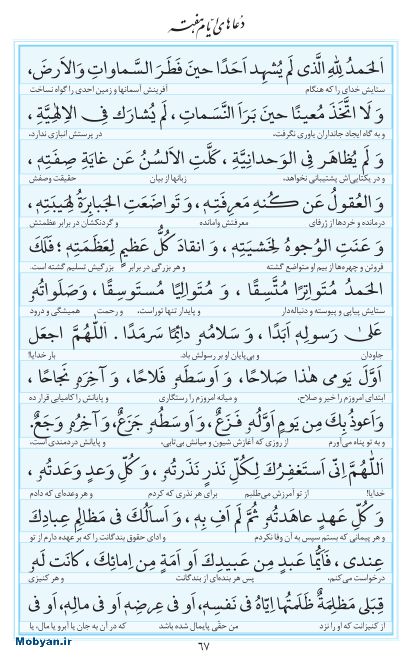 دعاهای ایام هفته
اَلحَمدُ لِلّهِ الَّذی لَم یُشهِد اَحَدًا حینَ فَطَرَ السَّماواتِ وَالاَرضَ،
ستایش خدای را که هنگام آفرینش آسمانها و زمین احدی را گواه نساخت
وَ لَا اتَّخَذَ مُعینًا حینَ بَرَاَ النَّسَماتِ، لَم یُشارَک فِی الاِلهِیَّةِ،
و به گاه ایجاد جانداران یاوری نگرفت. در پرستش انبازی ندارد.
وَ لَم یُظاهَر فِی الوَحدانِیَّةِ، کَلَّتِ الاَلسُنُ عَن غایَةِ صِفَتِهٖ،
و در یکتایی‌اش پشتیبانی نخواهد. زبانها از بیان حقیقت وصفش
وَ العُقولُ عَن کُنهِ مَعرِفَتِهٖ، وَ تَواضَعَتِ الجَبابِرَةُ لِهَیبَتِهٖ،
درمانده و خردها از ژرفای معرفتش وامانده و گردنکشان در برابر عظمتش
وَ عَنَتِ الوُجوهُ لِخَشیَتِهٖ، وَ انقادَ کُلُّ عَظیمٍ لِعَظَمَتِهٖ؛ فَلَکَ
فروتن و چهره‌ها از بیم او متواضع گشته و هر بزرگی در برابر بزرگیش تسلیم گشته است.
الحَمدُ مُتَواتِرًا مُتَّسِقًا، وَ مُتَوالِیًا مُستَوسِقًا، وَ صَلَواتُهٗ
ستایش پیاپی و پیوسته و دنباله‌دار و پایدار تنها توراست. و رحمت همیشگی و درود
عَلیٰ رَسولِهٖ اَبَدًا، وَ سَلامُهٗ دائِمًا سَرمَدًا. اَللّهُمَّ اجعَل
جاودان و بی‌پایان او بر رسولش باد. بار خدایا!
اَوَّلَ یَومی هٰذا صَلاحًا، وَ اَوسَطَهٗ فَلاحًا، وَ آخِرَهٗ نَجاحًا،
ابتدای امروزم را خیر و صلاح، و میانه امروزم را رستگاری و پایانش را کامیابی قرار ده
وَ اَعوذُ بِکَ مِن یَومٍ اَوَّلُهٗ فَزَعٌ، وَ اَوسَطُهٗ جَزَعٌ، وَ آخِرُهٗ وَجَعٌ.
و به تو پناه می‌آورم از روزی که آغازش شیون و میانش بی‌تابی، و پایانش دردمندی است.
اَللّهُمَّ اِنّی اَستَغفِرُکَ لِکُلِّ نَذرٍ نَذَرتُهٗ، وَ کُلِّ وَعدٍ وَعَدتُهٗ،
خدایا! از تو آمرزش می‌طلبم برای هر نذری که کردم و هر وعده‌ای که دادم
وَ کُلِّ عَهدٍ عاهَدتُهٗ ثُمَّ لَم اَفِ بِهٖ، وَ اَسأَلُکَ فی مَظالِمِ عِبادِکَ
و هر پیمانی که بستم سپس به آن وفا نکردم و ادای حقوق بندگانت را که بر عهده دارم از تو
عِندی، فَاَیُّما عَبدٍ مِن عَبیدِکَ اَو اَمَةٍ مِن اِمائِکَ، کانَت لَهٗ
درخواست می‌کنم. پس هر بنده‌ای از بندگانت و هر کنیزی
قِبَلی مَظلِمَةٌ ظَلَمتُها اِیّاهُ فی نَفسِهٖ، اَو فی عِرضِهٖ، اَو فی مالِهٖ، اَو فی
از کنیزانت که او را نزد من حقّی پایمال شده باشد که در آن به جان یا آبرو یا مال، یا
۶۷
Mobyan.ir